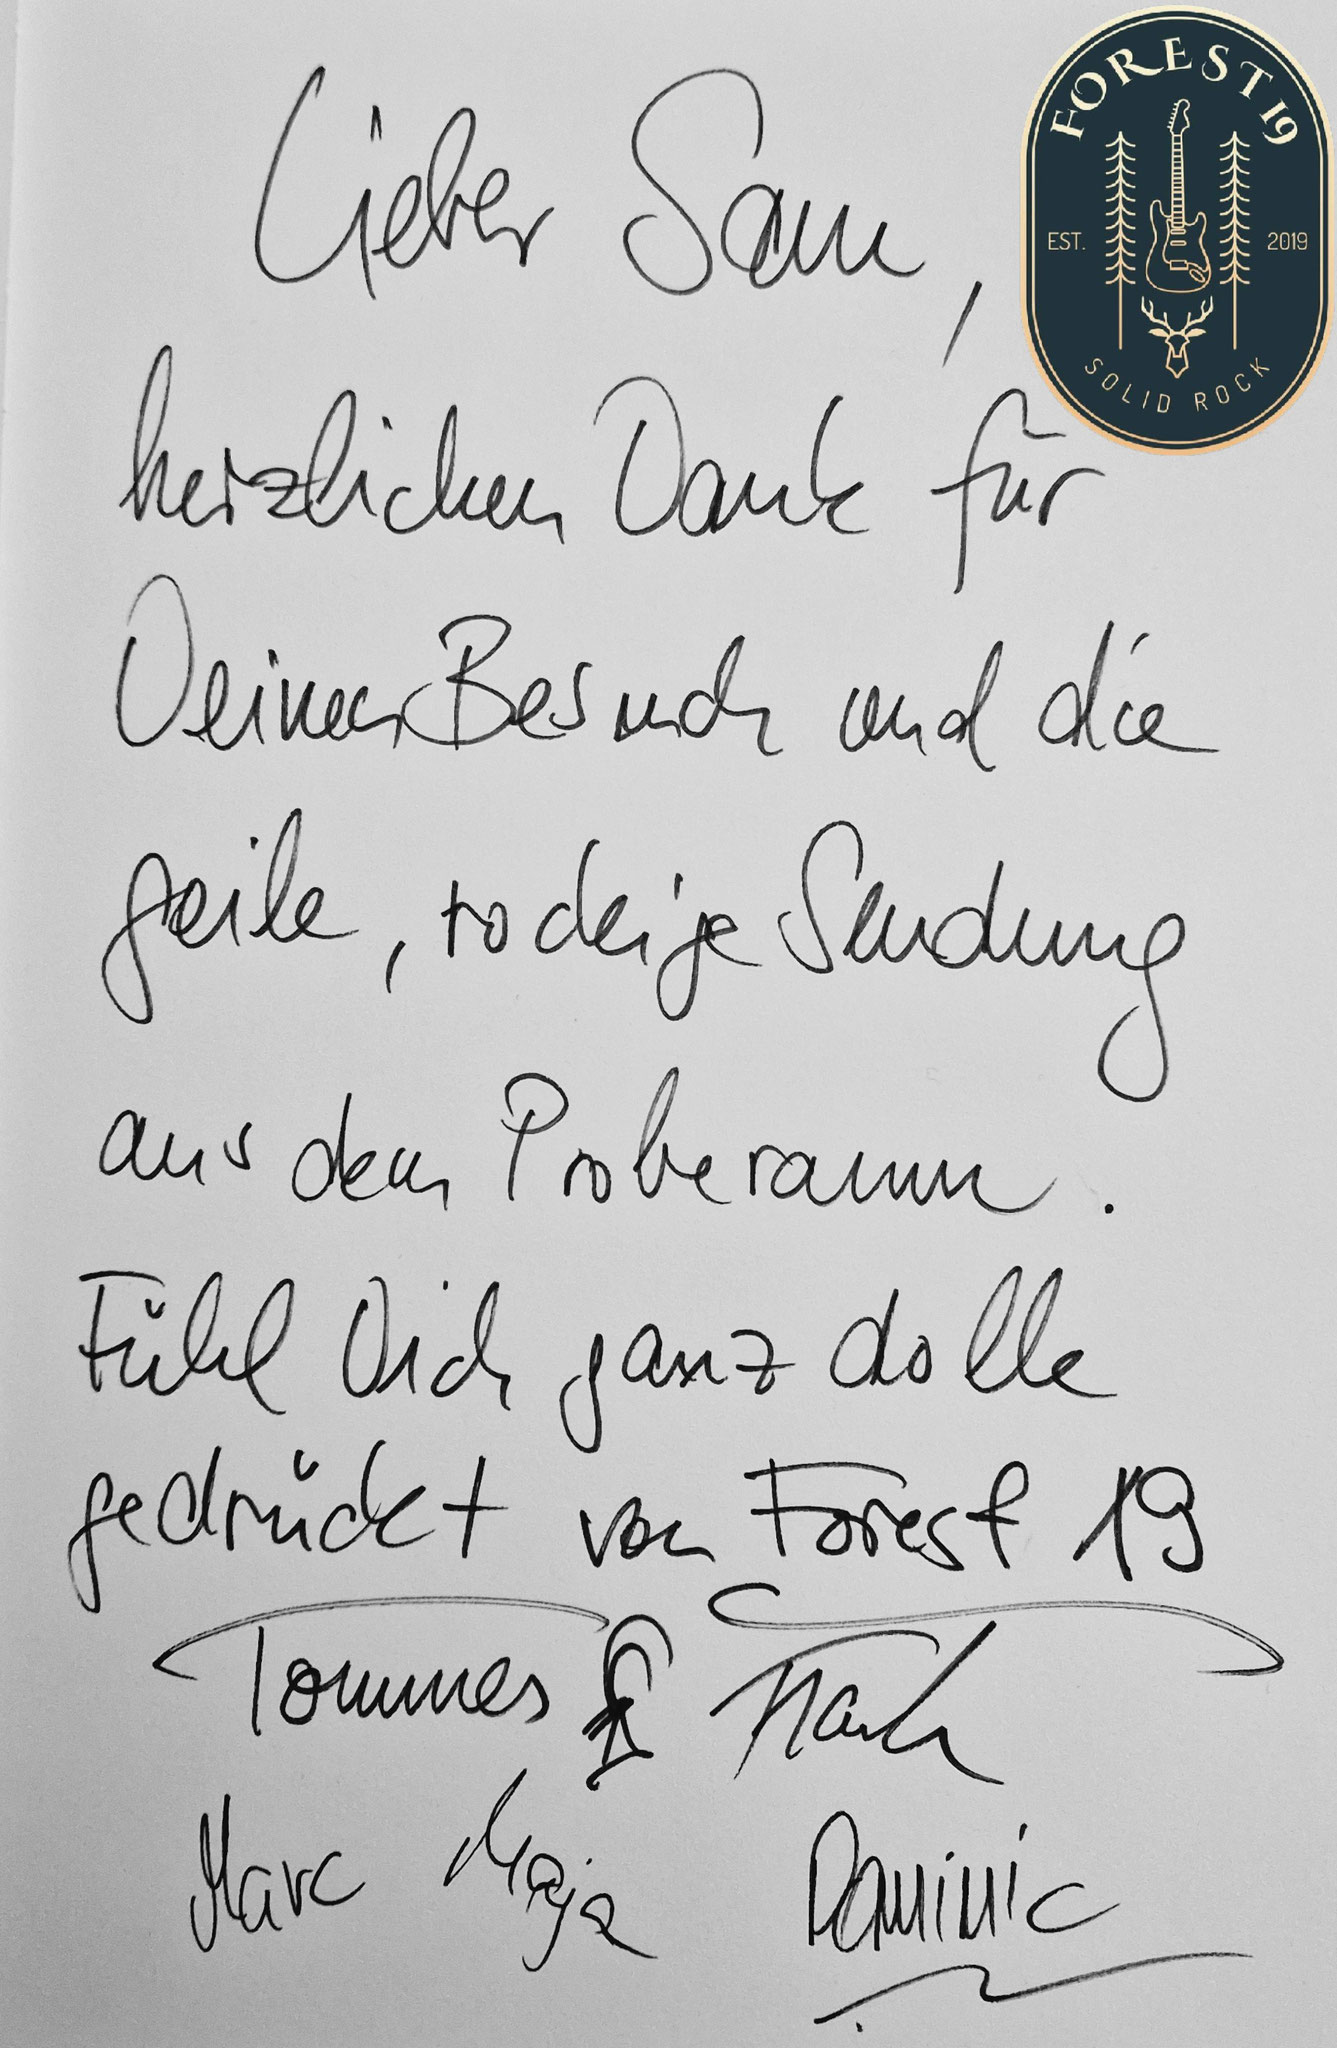 Lieber Sam,
FOREST 19
EST. 2019
SOLID ROCK
herzlichen Dank für
Deinen Besuch und die
geile, rockige Sendung
aus dem Proberaum.
Fühl Dich ganz dolle
gedrückt von Forest 19
Tommes
Marc Maja Dominic